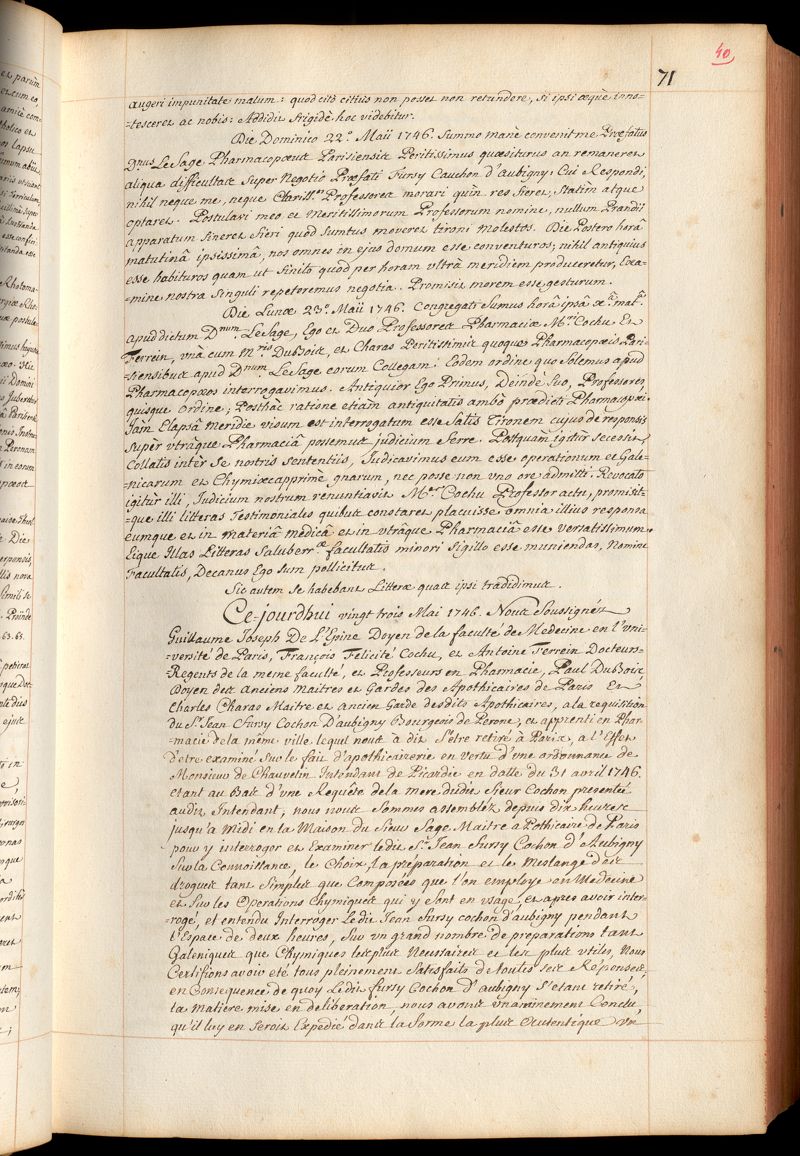 40
71
augeri impunitate malum: quod citò citius non posset non retundere, si ipsi æquè inno-
-tesceret ac nobis: Addidit frigidè hoc videbitur.
Die Dominico 22.ª Maii 1746. Summo manè convenit me Præfatus
D.nus LeSage Pharmacopoeus Parisiensis Peritissimus quæsiturus an remaneret
aliqua difficultas Super Negotio Præfati Fursy Cauchon d'aubigny: Cui Respondi,
nihil neque me, neque Clariss.os Professores morari quin res fieret, Statim atque
optaret. Postulavi meo et Meritissimorum Professorum nomine, nullum Prandii
apparatum sineret fieri quod sumtus moveret tironi molestos. Die Postero horâ
matutinâ ipsissimâ, nos omnes in ejus domum esse conventuros; nihil antiquius
esse habituros quam ut Sinito quod per horam ultrà meridiem produceretur, Exa-
-mine nostra Singuli repeteremus negotia. Promisit morem esse gesturum.
Die Lunæ 23.ª Maii 1746. Congregati Sumus horâ ipsâ x.â mat.â
apud dictum D.num LeSage, Ego et Duo Professores Pharmaciæ M.ri Cochu Et
Ferrein, unà cum M.ris DuBois, et Charas Peritissimis quoque Pharmacopæis Pari-
-siensibus apud D.num LeSage eorum Collegam: Eodem ordine quo Solemus apud
Pharmacopæos interrogavimus. Antiquior Ego Primus, Deindè Suo, Professores,
quisque Ordine; Posthàc ratione etiàm antiquitatis ambò prædicti Pharmacopæi.
Jàm Elapsâ Meridie visum est interrogatum esse Satis Tironem cujus de responsis
Supèr utrâque Pharmaciâ possemus judicium ferre. Postquam igitur secessit
Collatis intèr Se nostris Sententiis, Judicavimus eum esse operationum et Gale-
-nicarum et Chymicæ apprimè gnarum, nec posse non uno ore admitti. Revocato
igitur illi, Judicium nostrum renuntiavit M.er Cochu Professor actu, promisit-
-que illi litteras Testimoniales quibus constaret placuisse omnia illius responsa
eumque et in materiâ medicâ et in utrâque Pharmaciâ esse versatissimum.
Eique Illas Litteras Saluberr.æ facultatis minori Sigillo esse muniendas, Nomine
Facultatis, Decanus Ego Sum pollicitus.
Sic autem se habebant Litteræ quas ipsi tradidimus.
Ce-jourdhui vingt trois Mai 1746. Nous Soussignés
Guillaume Joseph De L'Epine Doyen de la faculté de Medecine en l'uni-
-versité de Paris, François Felicité Cochu, et Antoine Ferrein Docteurs-
Regents de la meme faculté, et Professeurs en Pharmacie, Paul DuBois
Doyen des Anciens Maitres et Gardes des Apothicaires de Paris Et
Charles Charas Maitre et ancien Garde desdits Apothicaires, a la requisition
du S.r Jean Fursy Cochon D'aubigny Bourgeois de Perone, et apprenti en Phar-
-macie de la même ville lequel nous à dit S'être retiré à Paris, a l'Effet
D'etre examiné Sur le fait d'apothicairerie en vertu d'une ordonnance de
Monsieur de Chauvelin Intendant de Picardie en datte du 31 avril 1746.
etant au Bas d'une Requête de la mere dudit Sieur Cochon presentée
audit Intendant, nous nous Sommes assemblez depuis dix heures
jusqu'a Midi en la Maison du Sieur Sage Maitre aPothicaire de Paris
pour y interroger et Examiner ledit S.r Jean Fursy Cochon d'Aubigny
Sur la Connoissance, le Choix, la préparation et le Meslange des
drogues tant Simples que Composées que l'on employe en Medecine
et Sur les Operations Chymiques qui y Sont en usage, et apres avoir inter-
-rogé, et entendu Interroger Ledit Jean Fursy Cochon d'aubigny pendant
l'Espace de deux heures, Sur un grand nombre de preparations tant
Galeniques que Chymiques les plus Necessaires et les plus utiles, Nous
Certifions avoir été tous pleinement Satisfaits de toutes Ses Réponses;
en Consequence de quoy Ledit Fursy Cochon D'aubigny S'etant retiré,
la Matiere mise en deliberation, nous avons unanimement Conclu,
qu'il luy en Seroit Expedié dans la forme la plus Autentique un